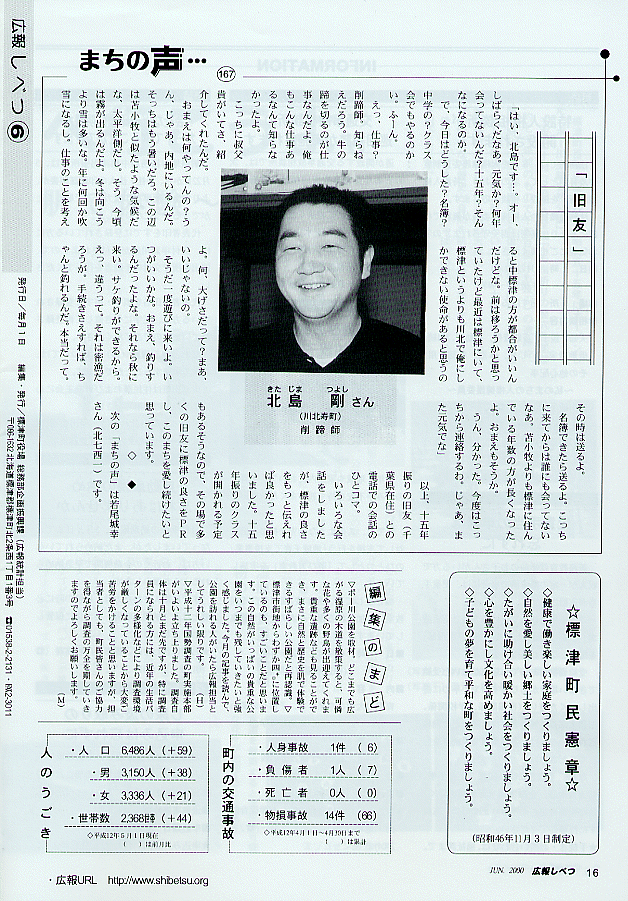 広報しべつ⑥
発行日/毎月1日 編集・発行/標津町役場 総務部企画振興課(広報統計担当)
〒086-1632 北海道標津郡標津町北2条西1丁目1番3号 ☎01538-2-2131・FAX2-3011
まちの声…
167
「旧友」
「はい、北島です…。オー、
しばらくだなあ。元気か?何年
会ってないんだ?十五年?そん
なになるのか。
で、今日はどうした?名簿?
中学の?クラス
会でもやるのか
い。ふーん。
えっ、仕事?
削蹄師。知らね
えだろう。牛の
蹄を切るのが仕
事なんだよ。俺
もこんな仕事あ
るなんて知らな
かったよ。
こっちに叔父
貴がいてさ、紹
介してくれたんだ。
おまえは何やってんの?う
ん、じゃあ、内地にいるんだ。
そっちはもう暑いだろ。この辺
は苫小牧と似たような気候だ
な、太平洋側だし。そう、今頃
は霧が出るんだよ。冬は向こう
より雪は多いな。年に何回か吹
雪になるし。仕事のことを考え
ると中標津の方が都合がいいん
だけどな。前は移ろうかと思っ
ていたけど最近は標津にいて、
標津というよりも川北で俺にし
かできない使命があると思うの
よ。何、大げさだって?まあ、
いいじゃないの。
そうだ一度遊びに来いよ。い
つがいいかな。おまえ、釣りす
るんだったよな。それなら秋に
来い。サケ釣りができるから。
えっ、違うって。それは密漁だ
ろうが。手続きさえすれば、ち
ゃんと釣れるんだ。本当だって。
その時は送るよ。
名簿できたら送るよ。こっち
に来てからは誰にも会ってない
なあ。苫小牧よりも標津に住ん
でいる年数の方が長くなった
よ。おまえもそうか。
うん、分かった。今度はこっ
ちから連絡するわ。じゃあ、ま
た元気でな」
以上、十五年
振りの旧友(千
葉県在住)との
電話での会話の
ひとコマ。
いろいろな会
話をしました
が、標津の良さ
をもっと伝えれ
ば良かったと思
いました。十五
年振りのクラス
が開かれる予定
もあるそうなので、その場で多
くの旧友に標津の良さをPR
し、このまちを愛し続けたいと
思っています。
◇ ◆
次の「まちの声」は若尾城幸
さん(北七西一)です。
きた じま つよし
北島 剛さん
(川北寿町)
削蹄師
☆標津町民憲章☆
◇健康で働き楽しい家庭をつくりましょう。
◇自然を愛し美しい郷土をつくりましょう。
◇たがいに助け合い暖かい社会をつくりましょう。
◇心を豊かにし文化を高めましょう。
◇子どもの夢を育て平和な町をつくりましょう。
(昭和46年11月3日制定)
編集のまど
▽ポー川公園を取材。どこまでも広
がる湿原の木道を散策すると、可憐
な花や多くの野鳥が出迎えてくれま
す。貴重な遺跡なども見ることがで
き、まさに自然と歴史を肌で体験で
きるすばらしい公園だと再認識。▽
標津市街地からわずか四㌔に位置し
ているのも、すごいことだと思いま
す。この自然がいっぱいの貴重な公
園をいつまでも残していきたいと強
く感じました。今月の記事を読んで、
公園を訪れる人がいたら広報担当と
してうれしい限りです。 (H)
▽平成十二年国勢調査の町実施本部
がいよいよ立ち上りました。調査自
体は十月とまだ先ですが、特に調査
員になられる方には、近年の生活パ
ターンの多様化などにより調査環境
が厳しくなっていることから大変ご
苦労をかけることと思いますが、担
当者として、町民皆さんのご協力
を得ながら調査の万全を期していき
ますのでよろしくお願いします。
(M)
町内の交通事故
・人身事故 1件 ( 6)
・負傷者 1人 ( 7)
・死亡者 0人 ( 0)
・物損事故 14件 (66)
◇平成12年4月1日〜4月30日まで
( )は累計
人のうごき
・人口 6,486人 (+59)
・男 3,150人 (+38)
・女 3,336人 (+21)
・世帯数 2,368世帯 (+44)
◇平成12年5月1日現在
( )は前月比
・広報URL http://www.shibetsu.org
JUN. 2000 広報しべつ 16